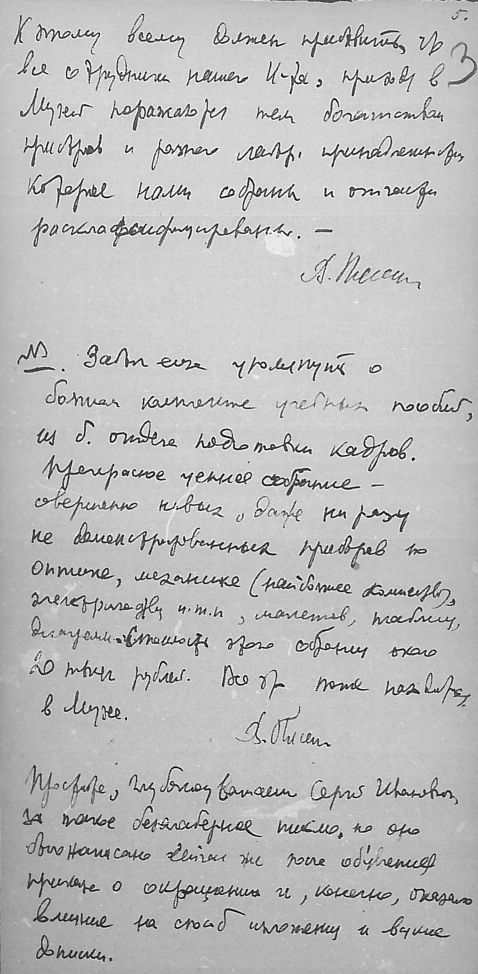 5.
3
К этому всему должен прибавить, что
все сотрудники нашего И-та, приходя в
Музей поражаются тем богатством
приборов и разного лабор. принадлежностей
которые нами собраны и отчасти
расклассифицированы. —
А.
NB. Забыл еще упомянуть о
большом комплекте учебных пособий,
из б. отдела подготовки кадров.
Прекрасное ценное собрание —
совершенно новых, даже ни разу
не демонстрированных приборов по
оптике, механике (наибольшее количество),
электричеству и.т.п, макетов, таблиц,
Стоимость этого собрания около
20 тысяч рублей. Все это тоже находится
в Музее.
А.
Простите, глубокоуважаем Сергей Иванович,
за такое безалаберное письмо, но оно
было написано сейчас же после объявления
приказа о сокращении и, конечно, оказало
влияние на способ изложения и всякие
описки.